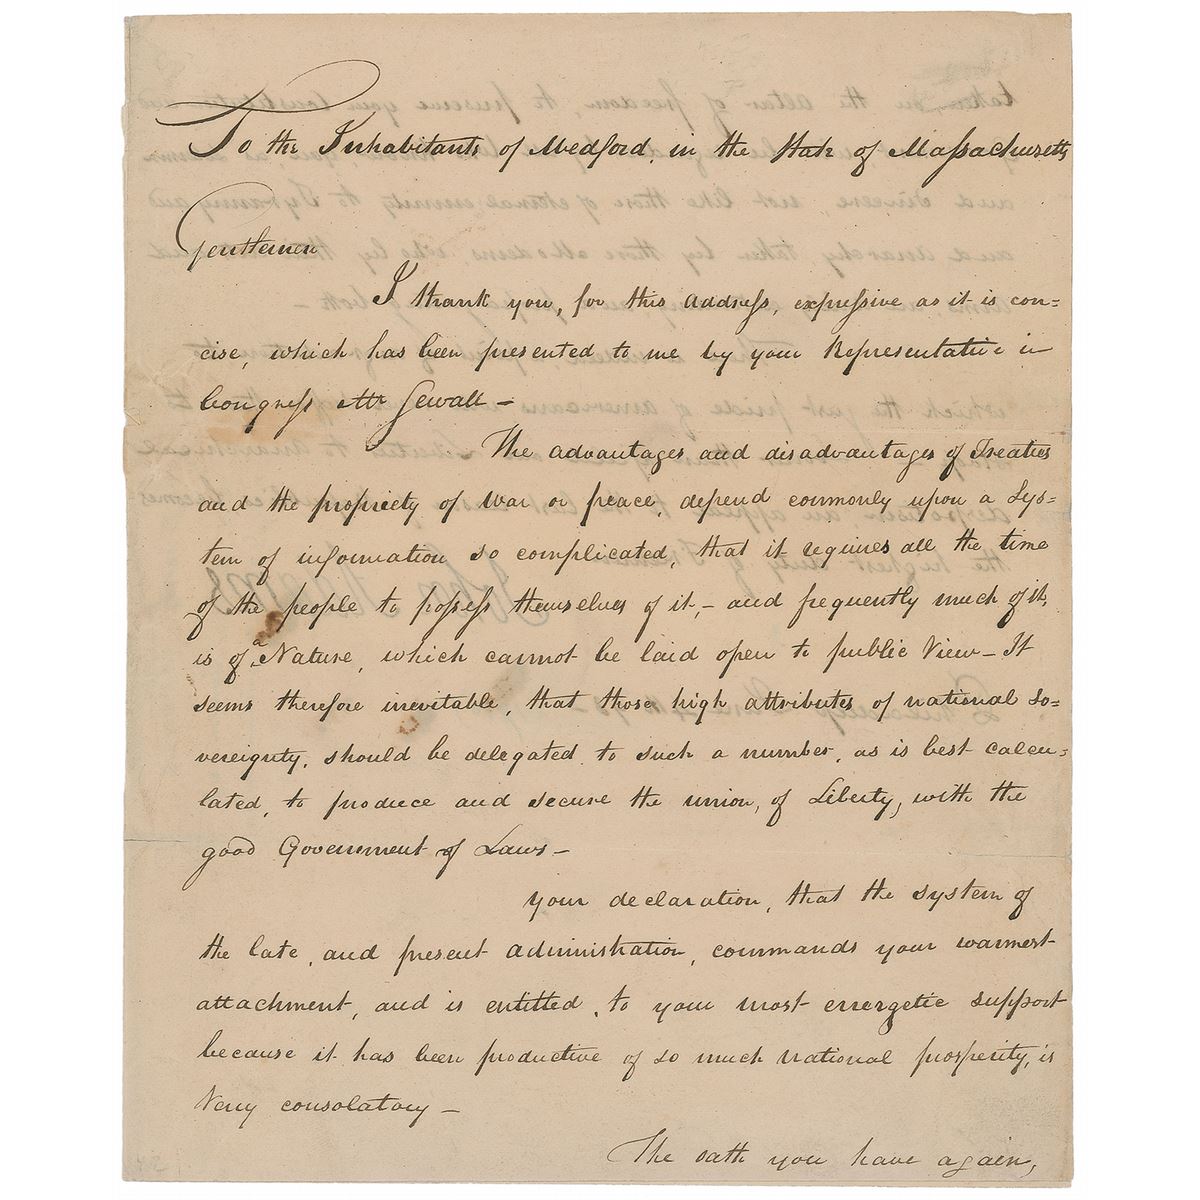 To the Inhabitants of Medford, in the State of Massachusetts
Gentlemen
I thank you, for this address, expressive as it is con=
cise, which has been presented to me by your Representative in
Congress Mr Sewall —
The advantages and disadvantages of Treaties
and the propriety of war or peace, depend commonly upon a Sys=
tem of information so complicated, that it requires all the time
of the people to possess themselves of it, — and frequently much of it,
is of a Nature, which cannot be laid open to public View — It
seems therefore inevitable, that those high attributes of national so=
vereignty, should be delegated to such a number, as is best calcu=
lated, to produce and secure the union, of Liberty, with the
good Government of Laws —
your declaration, that the system of
the late, and present administration, commands your warmest
attachment, and is entitled, to your most energetic support
because it has been productive of so much national prosperity, is
Very consolatory —
The oath you have again,